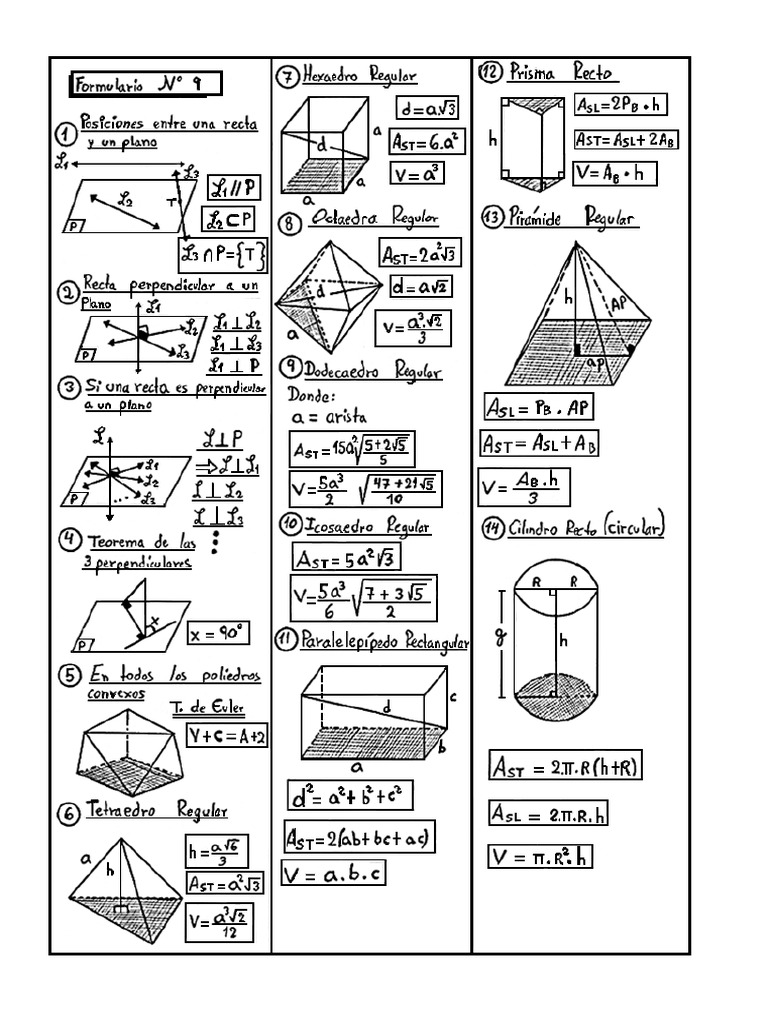 Formulario N° 9
① Posiciones entre una recta
y un plano
ℒ1
ℒ3
ℒ2
T
P
ℒ1 // P
ℒ2 ⊂ P
ℒ3 ∩ P = {T}
② Recta perpendicular a un
Plano
ℒ1
ℒ2
ℒ3
P
ℒ1 ⊥ ℒ2
ℒ1 ⊥ ℒ3
ℒ1 ⊥ P
③ Si una recta es perpendicular
a un plano
ℒ
ℒ1
ℒ2
ℒ3
...
P
ℒ ⊥ P
⇒ ℒ ⊥ ℒ1
ℒ ⊥ ℒ2
ℒ ⊥ ℒ3
⋮
④ Teorema de las
3 perpendiculares
x
P
x = 90°
⑤ En todos los poliedros
convexos
T. de Euler
V + C = A + 2
⑥ Tetraedro Regular
a
h
h = a√6/3
AST = a²√3
V = a³√2/12
⑦ Hexaedro Regular
d
a
a
a
d = a√3
AST = 6.a²
V = a³
⑧ Octaedro Regular
d
a
AST = 2a²√3
d = a√2
V = a³.√2/3
⑨ Dodecaedro Regular
Donde:
a = arista
AST = 15a²√((5+2√5)/5)
V = 5a³/2 √((47+21√5)/10)
⑩ Icosaedro Regular
AST = 5a²√3
V = 5a³/6 √((7+3√5)/2)
⑪ Paralelepípedo Rectangular
d
c
b
a
d² = a² + b² + c²
AST = 2(ab + bc + ac)
V = a.b.c
⑫ Prisma Recto
h
ASL = 2PB • h
AST = ASL + 2AB
V = AB • h
⑬ Pirámide Regular
h
AP
ap
ASL = PB . AP
AST = ASL + AB
V = AB.h/3
⑭ Cilindro Recto (circular)
R R
g
h
AST = 2.π.R(h+R)
ASL = 2.π.R.h
V = π.R².h